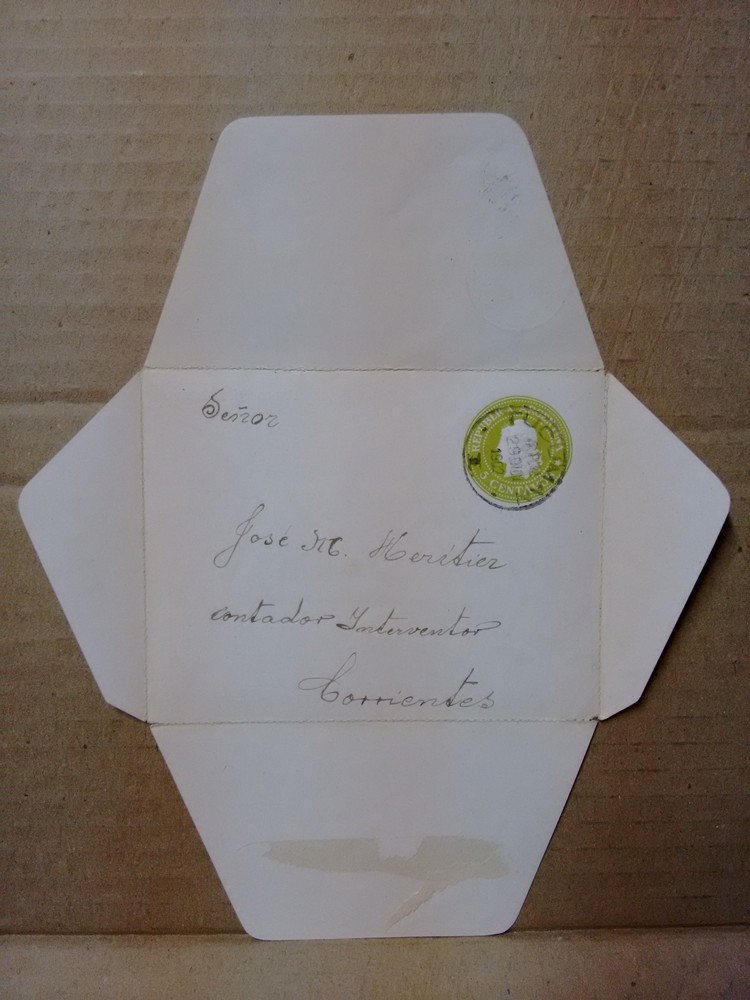 Señor
REPUBLICA ARGENTINA
5 CENTAVOS
29 DI
José M. Meritier
contador Interventor
Corrientes